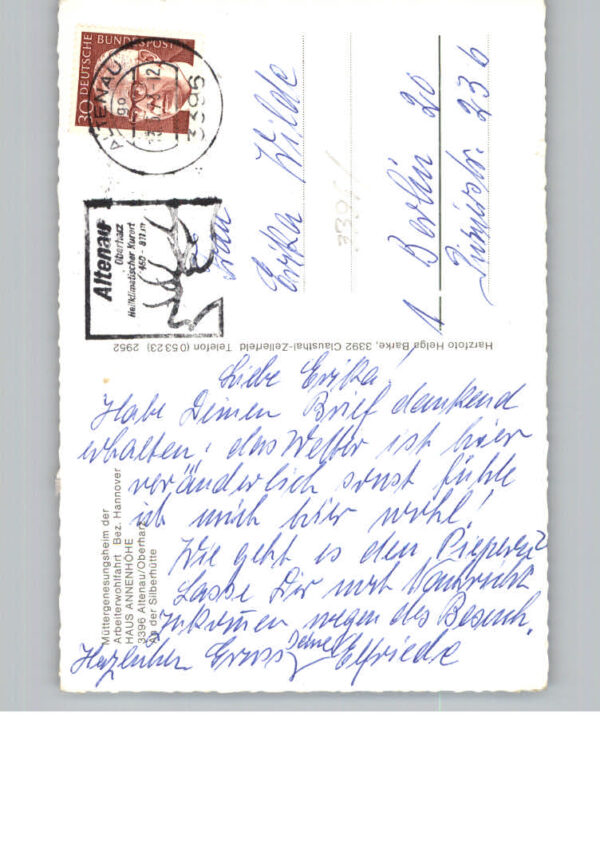 DEUTSCHE BUNDESPOST
30
ALTENAU
3396
Altenau
Oberharz
Heilklimatischer Kurort
450 - 811 m
Frau
Erika Wilde
1 Berlin 20
236
Harzfoto Helga Barke, 3392 Clausthal-Zellerfeld Telefon (05323) 2952
Müttergenesungsheim der
Arbeiterwohlfahrt Bez. Hannover
HAUS ANNENHÖHE
3396 Altenau/Oberharz
An der Silberhütte
Liebe Erika!
Habe Deinen Brief dankend
erhalten, das Wetter ist hier
veränderlich sonst fühle
ich mich hier wohl!
Wie geht es den
Lasse Dir noch Nachricht
zukommen wegen des Besuch.
Herzlichen Gruss Deine Elfriede